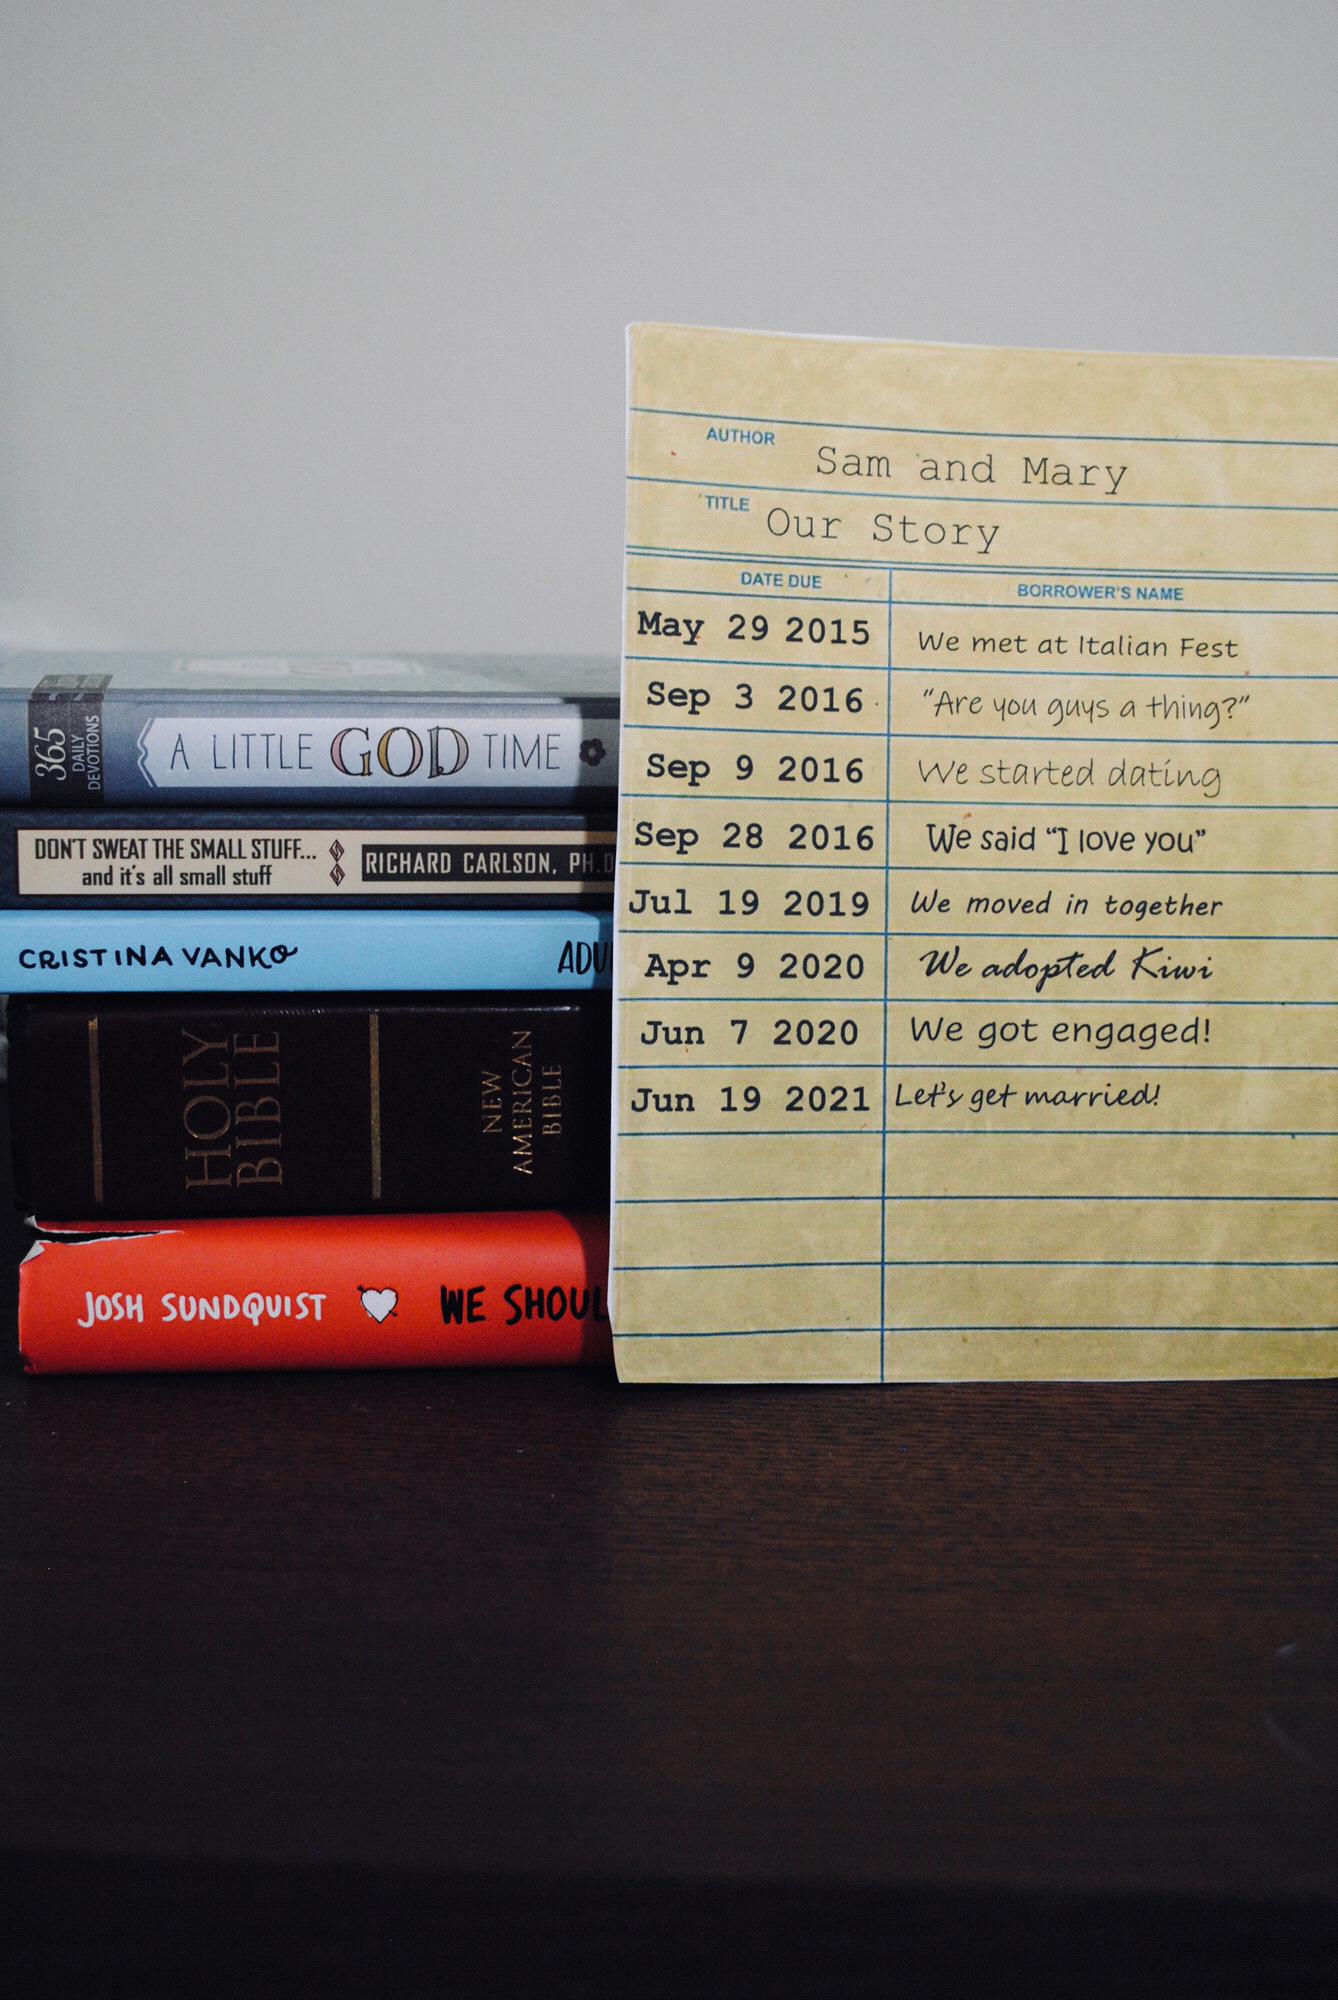 365
DAILY
DEVOTIONS
A LITTLE GOD TIME
DON'T SWEAT THE SMALL STUFF...
and it's all small stuff
RICHARD CARLSON, PH.D
CRISTINA VANKO
HOLY
BIBLE
NEW
AMERICAN
BIBLE
JOSH SUNDQUIST WE
AUTHOR Sam and Mary
TITLE Our Story
DATE DUE BORROWER'S NAME
May 29 2015 We met at Italian Fest
Sep 3 2016 "Are you guys a thing?"
Sep 9 2016 We started dating
Sep 28 2016 We said "I love you"
Jul 19 2019 We moved in together
Apr 9 2020 We adopted Kiwi
Jun 7 2020 We got engaged!
Jun 19 2021 Let's get married!